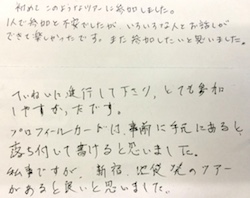 初めてこのようなツアーに参加しました。
1人で参加と不安でしたが、いろいろな人とお話しが
できて楽しかったです。また参加したいと思いました。
ていねいに進行して下さり、とても参加
しやすかったです。
プロフィールカードは、事前に手元にあると
落ち付いて書けると思いました。
私事ですが、新宿、池袋発のツアー
があると良いと思いました。